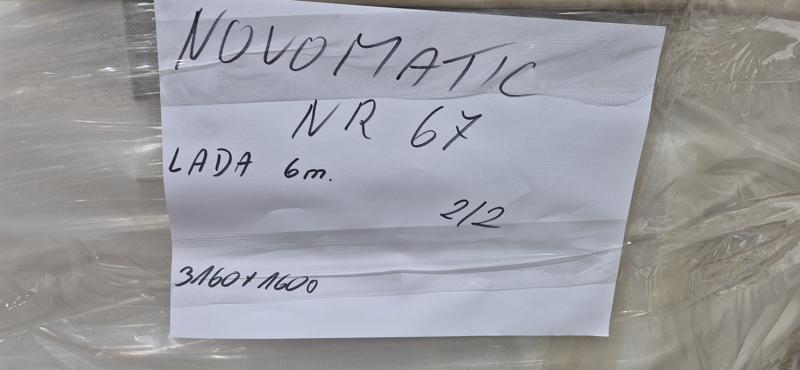 NOVOMATIC
NR 67
LADA 6m.
2/2
3160+1600